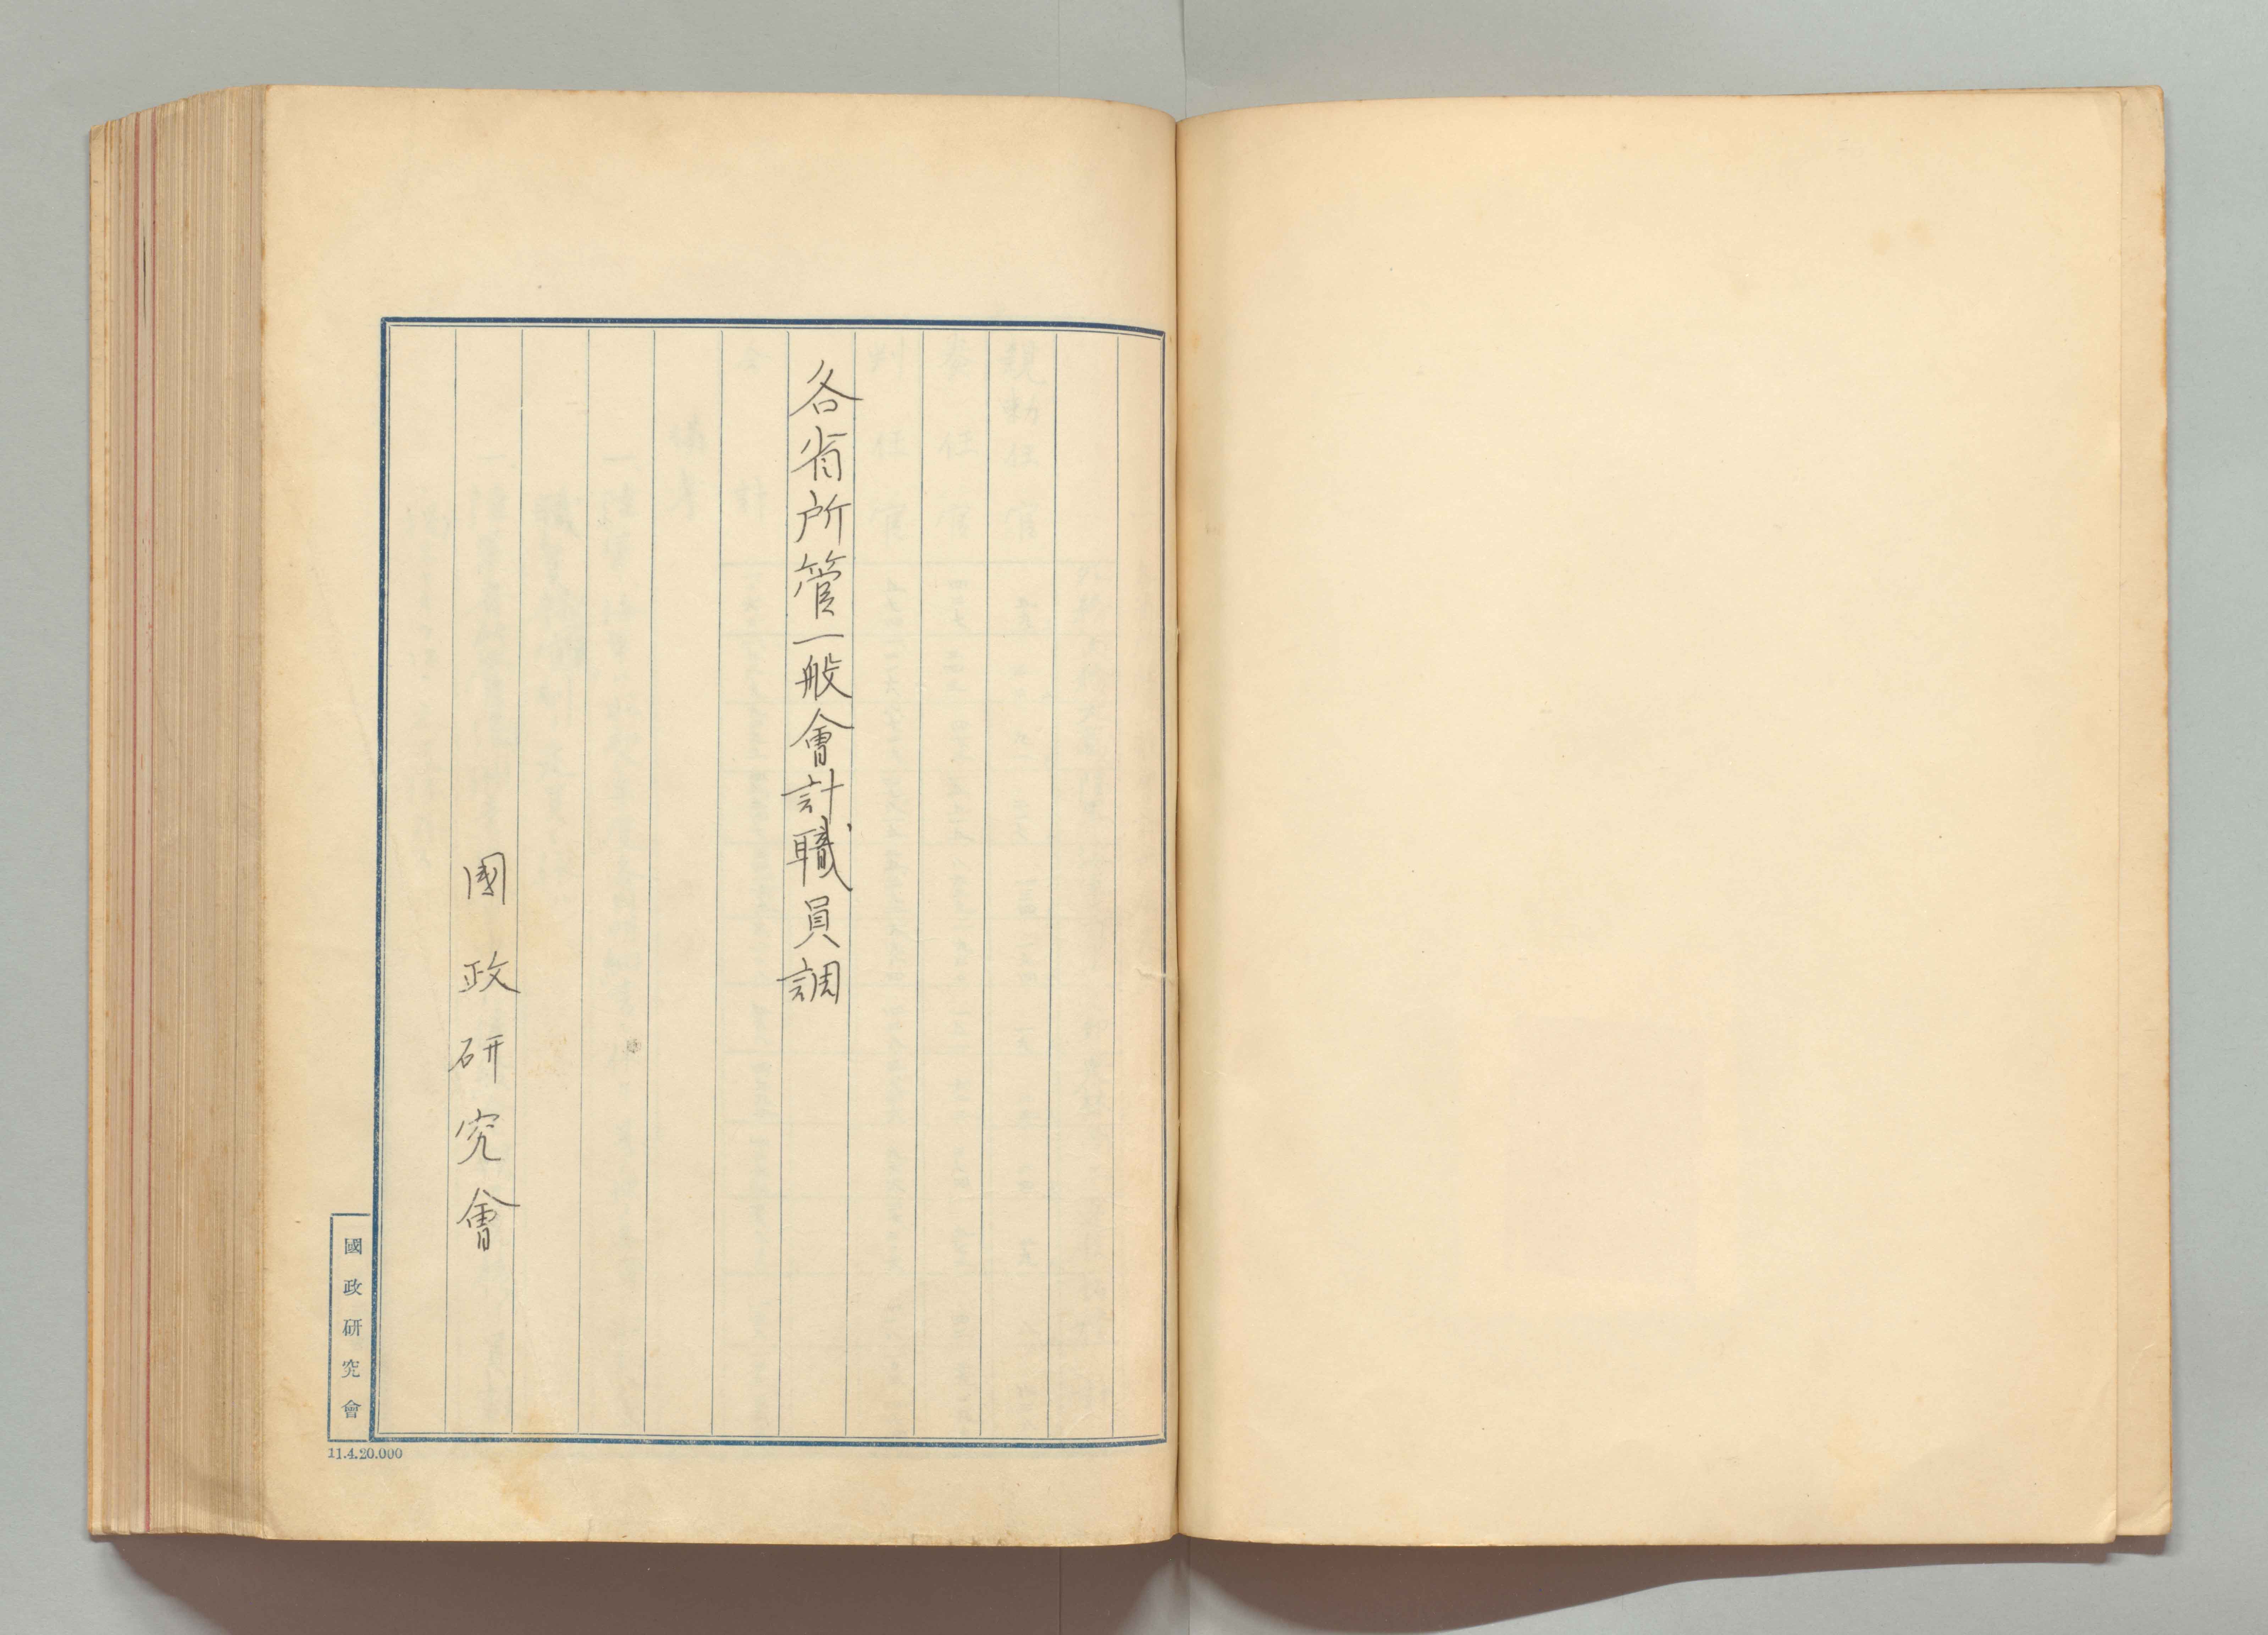 各省所管一般會計職員調
國政研究會
國政研究會
11.4.20.000